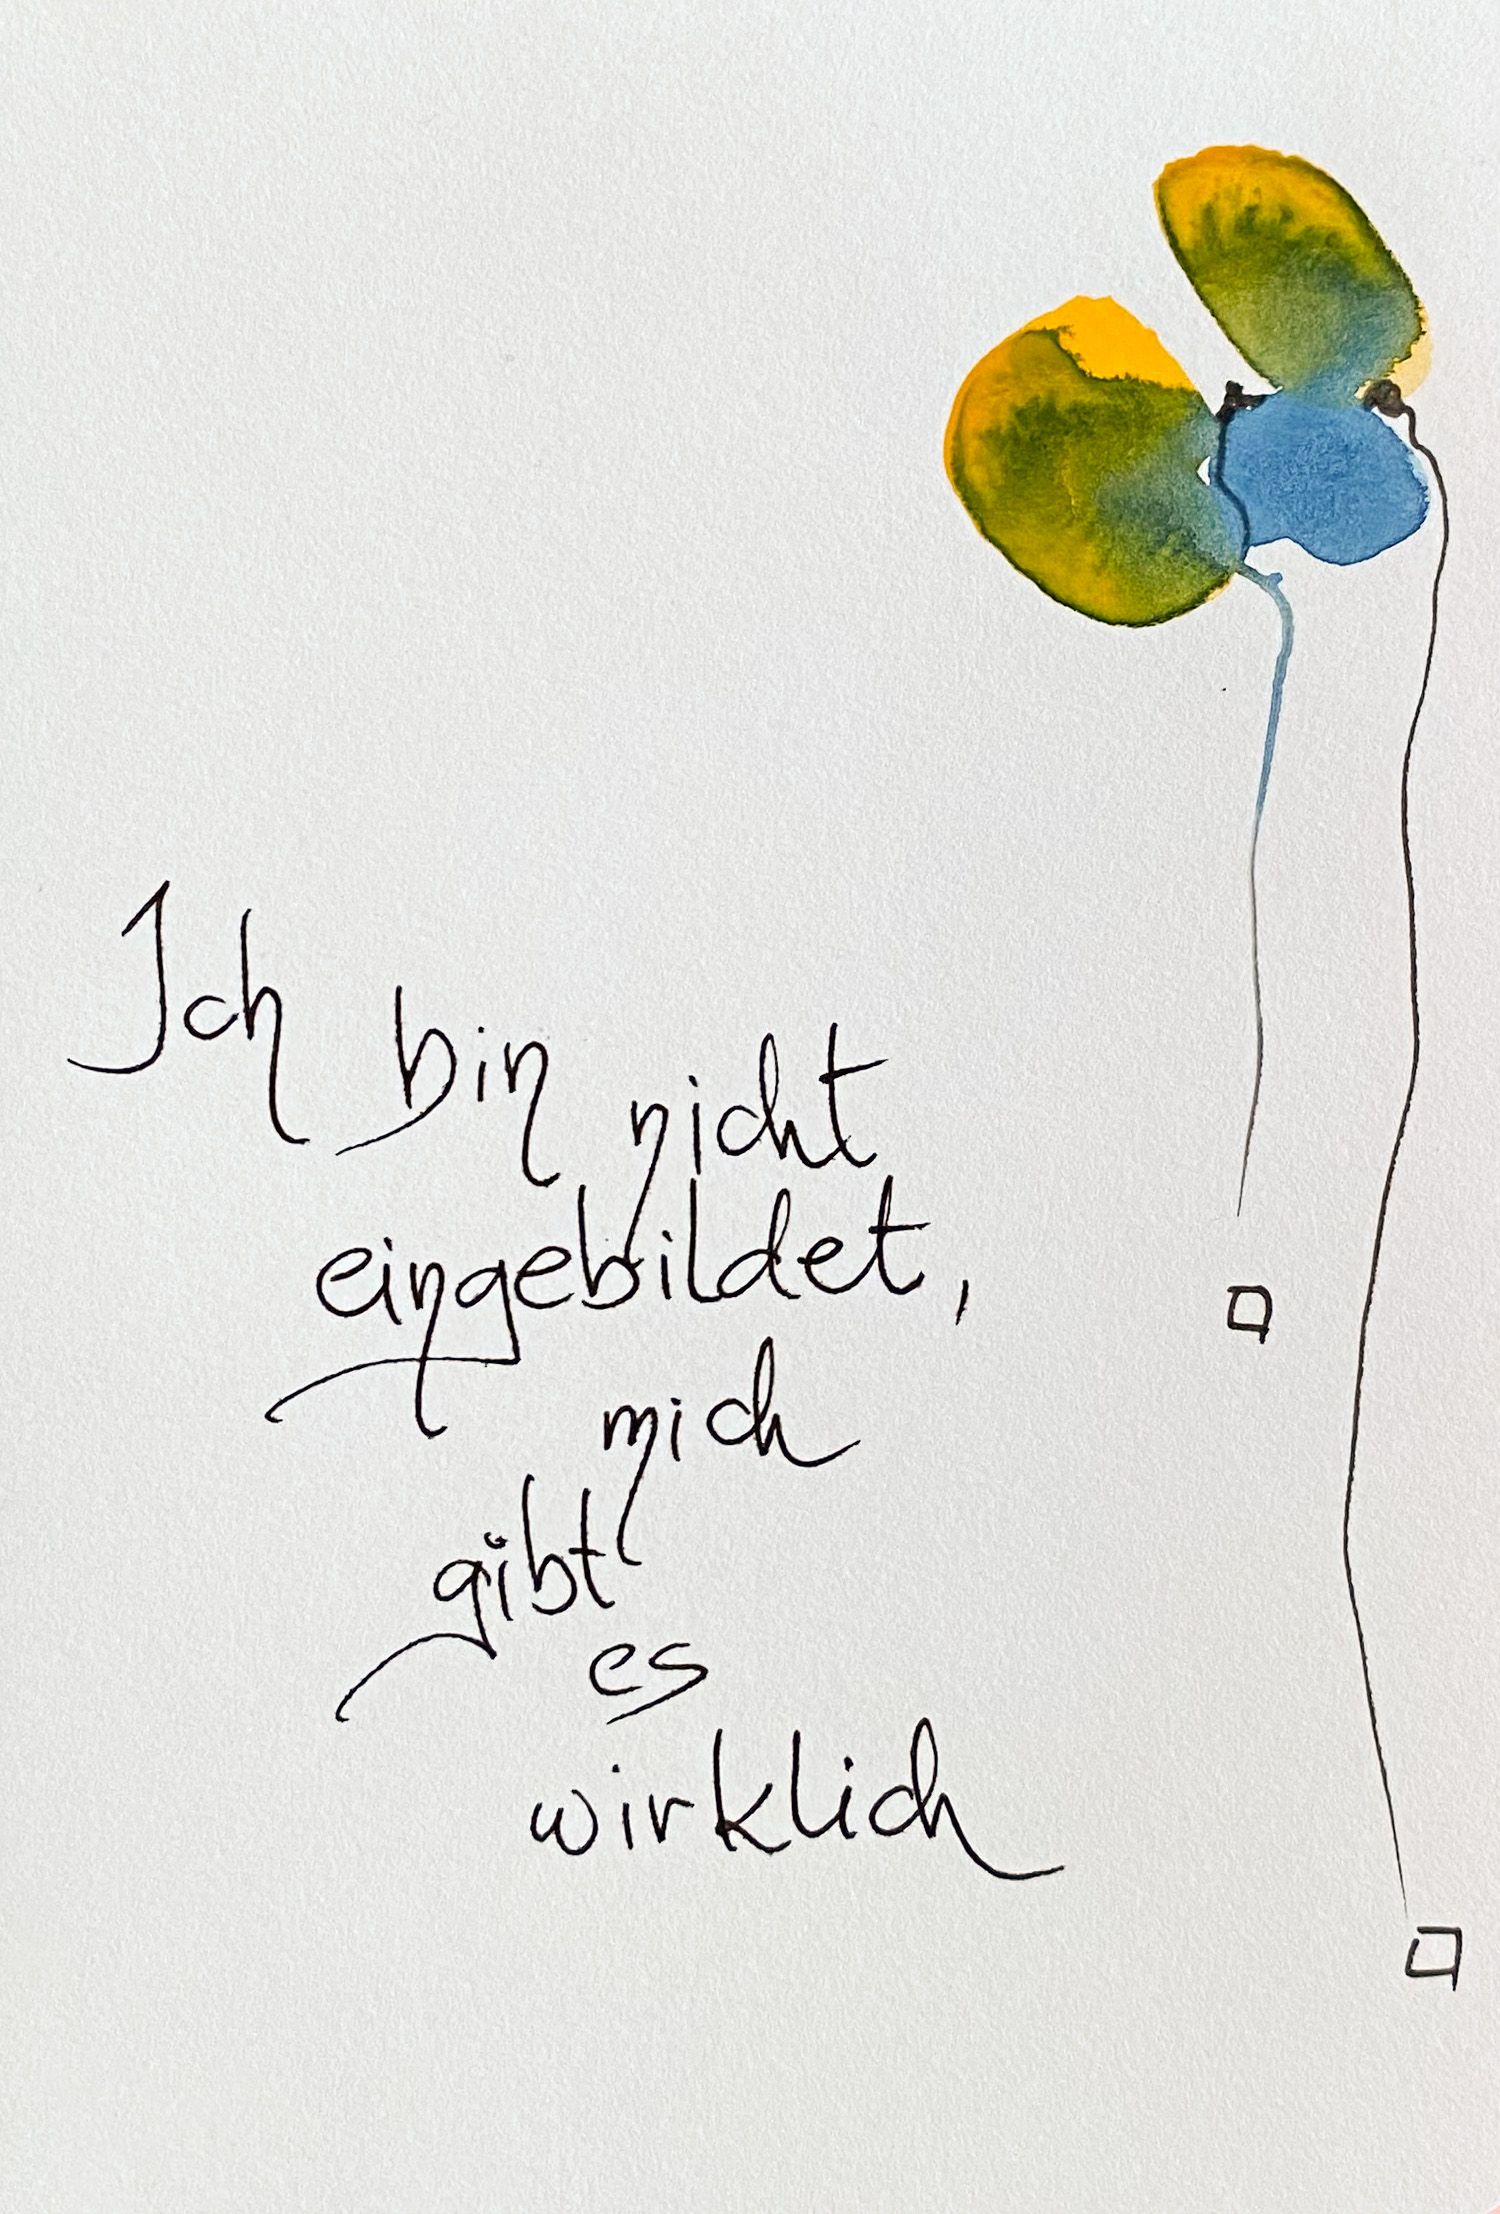 Ich bin nicht
eingebildet,
mich
gibt
es
wirklich